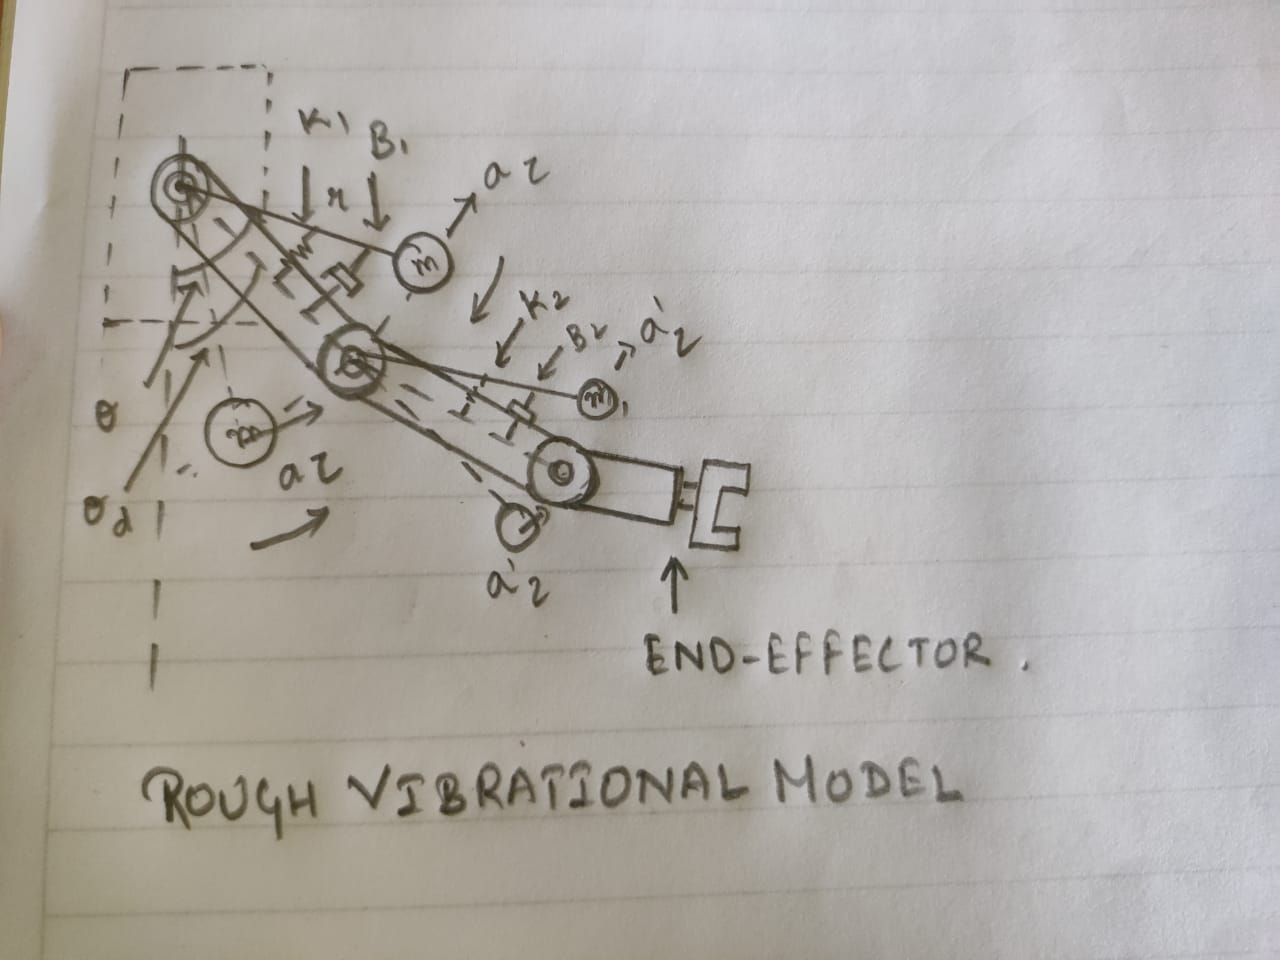 K1
B1
r
a2
m
K2
B2
a'2
m1
θ
m
a2
θd
a'2
END-EFFECTOR.
ROUGH VIBRATIONAL MODEL